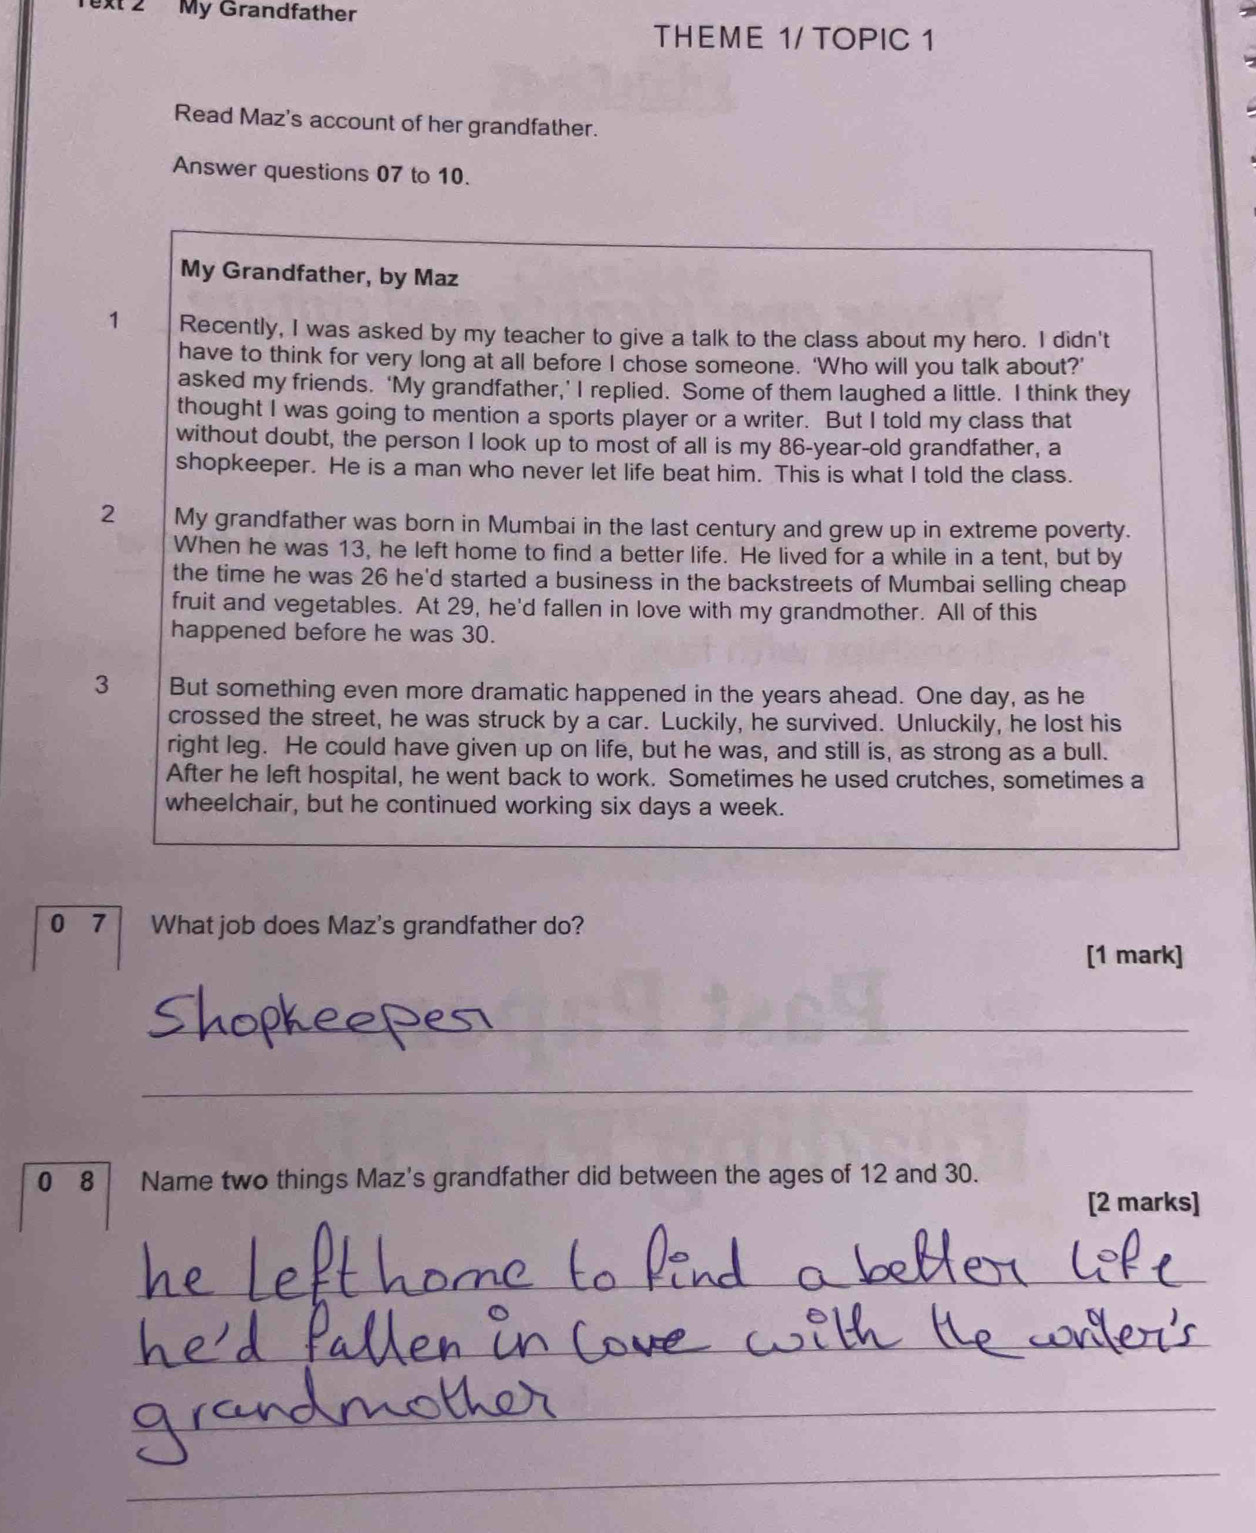 Text 2 My Grandfather
THEME 1/ TOPIC 1
Read Maz's account of her grandfather.
Answer questions 07 to 10.
My Grandfather, by Maz
1 Recently, I was asked by my teacher to give a talk to the class about my hero. I didn't
have to think for very long at all before I chose someone. 'Who will you talk about?'
asked my friends. 'My grandfather,' I replied. Some of them laughed a little. I think they
thought I was going to mention a sports player or a writer. But I told my class that
without doubt, the person I look up to most of all is my 86-year-old grandfather, a
shopkeeper. He is a man who never let life beat him. This is what I told the class.
2 My grandfather was born in Mumbai in the last century and grew up in extreme poverty.
When he was 13, he left home to find a better life. He lived for a while in a tent, but by
the time he was 26 he'd started a business in the backstreets of Mumbai selling cheap
fruit and vegetables. At 29, he'd fallen in love with my grandmother. All of this
happened before he was 30.
3 But something even more dramatic happened in the years ahead. One day, as he
crossed the street, he was struck by a car. Luckily, he survived. Unluckily, he lost his
right leg. He could have given up on life, but he was, and still is, as strong as a bull.
After he left hospital, he went back to work. Sometimes he used crutches, sometimes a
wheelchair, but he continued working six days a week.
0 7 What job does Maz's grandfather do?
[1 mark]
Shopkeeper
0 8 Name two things Maz's grandfather did between the ages of 12 and 30.
[2 marks]
he left home to find a better life
he'd fallen in love with the writer's
grandmother